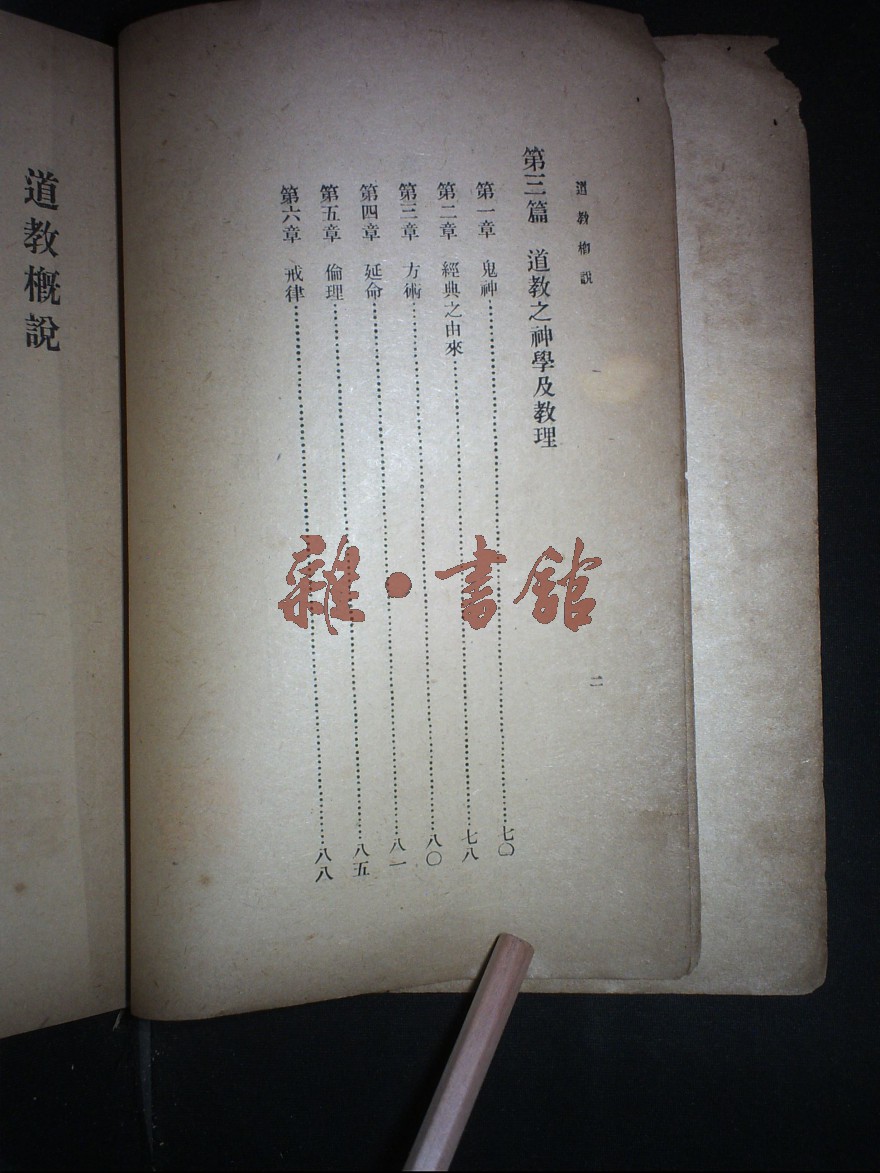 道教概說
二
第三篇 道教之神學及教理
第一章 鬼神……七〇
第二章 經典之由來……七八
第三章 方術……八〇
第四章 延命……八一
第五章 倫理……八五
第六章 戒律……八八
道教概說
雜·書館